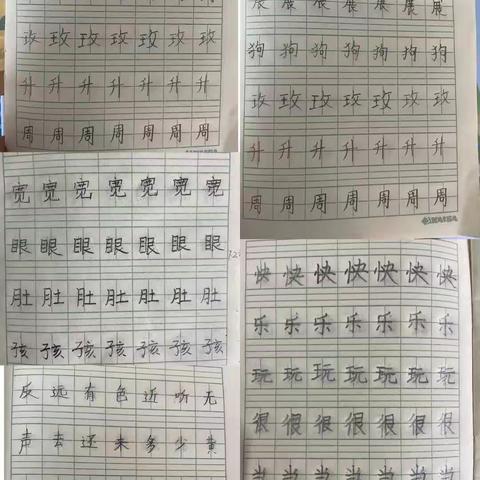 玫玫玫玫玫玫玫
升升升升升升升
周周周周周周周
展展展展展展展
狗狗狗狗狗狗狗
玫玫玫玫玫玫玫
升升升升升升升
周周周周周周周
宽宽宽宽宽宽宽
眼眼眼眼眼眼眼
肚肚肚肚肚肚肚
孩孩孩孩孩孩孩
快快快快快快快
乐乐乐乐乐乐乐
玩玩玩玩玩玩玩
很很很很很很很
当当当当当当当
反远有色近听无
声去还来多少黄